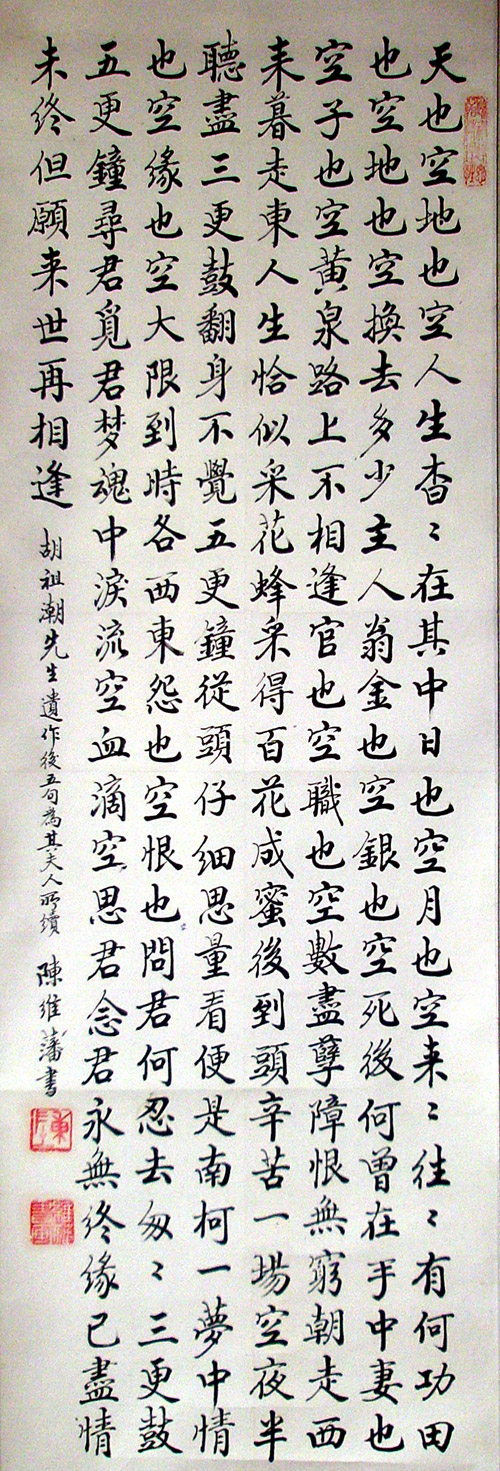 天也空地也空人生杳〻在其中日也空月也空来〻往〻有何功田
也空地也空換去多少主人翁金也空銀也空死後何曾在手中妻也
空子也空黃泉路上不相逢官也空職也空數盡孽障恨無窮朝走西
来暮走東人生恰似采花蜂采得百花成蜜後到頭辛苦一場空夜半
聽盡三更鼓翻身不覺五更鐘從頭仔细思量看便是南柯一夢中情
也空缘也空大限到時各西東怨也空恨也問君何忍去匆〻三更鼓
五更鐘尋君覓君梦魂中淚流空血滴空思君念君永無终缘已盡情
未终但願来世再相逢
胡祖潮先生遺作後五句為其夫人所續 陳維藩書